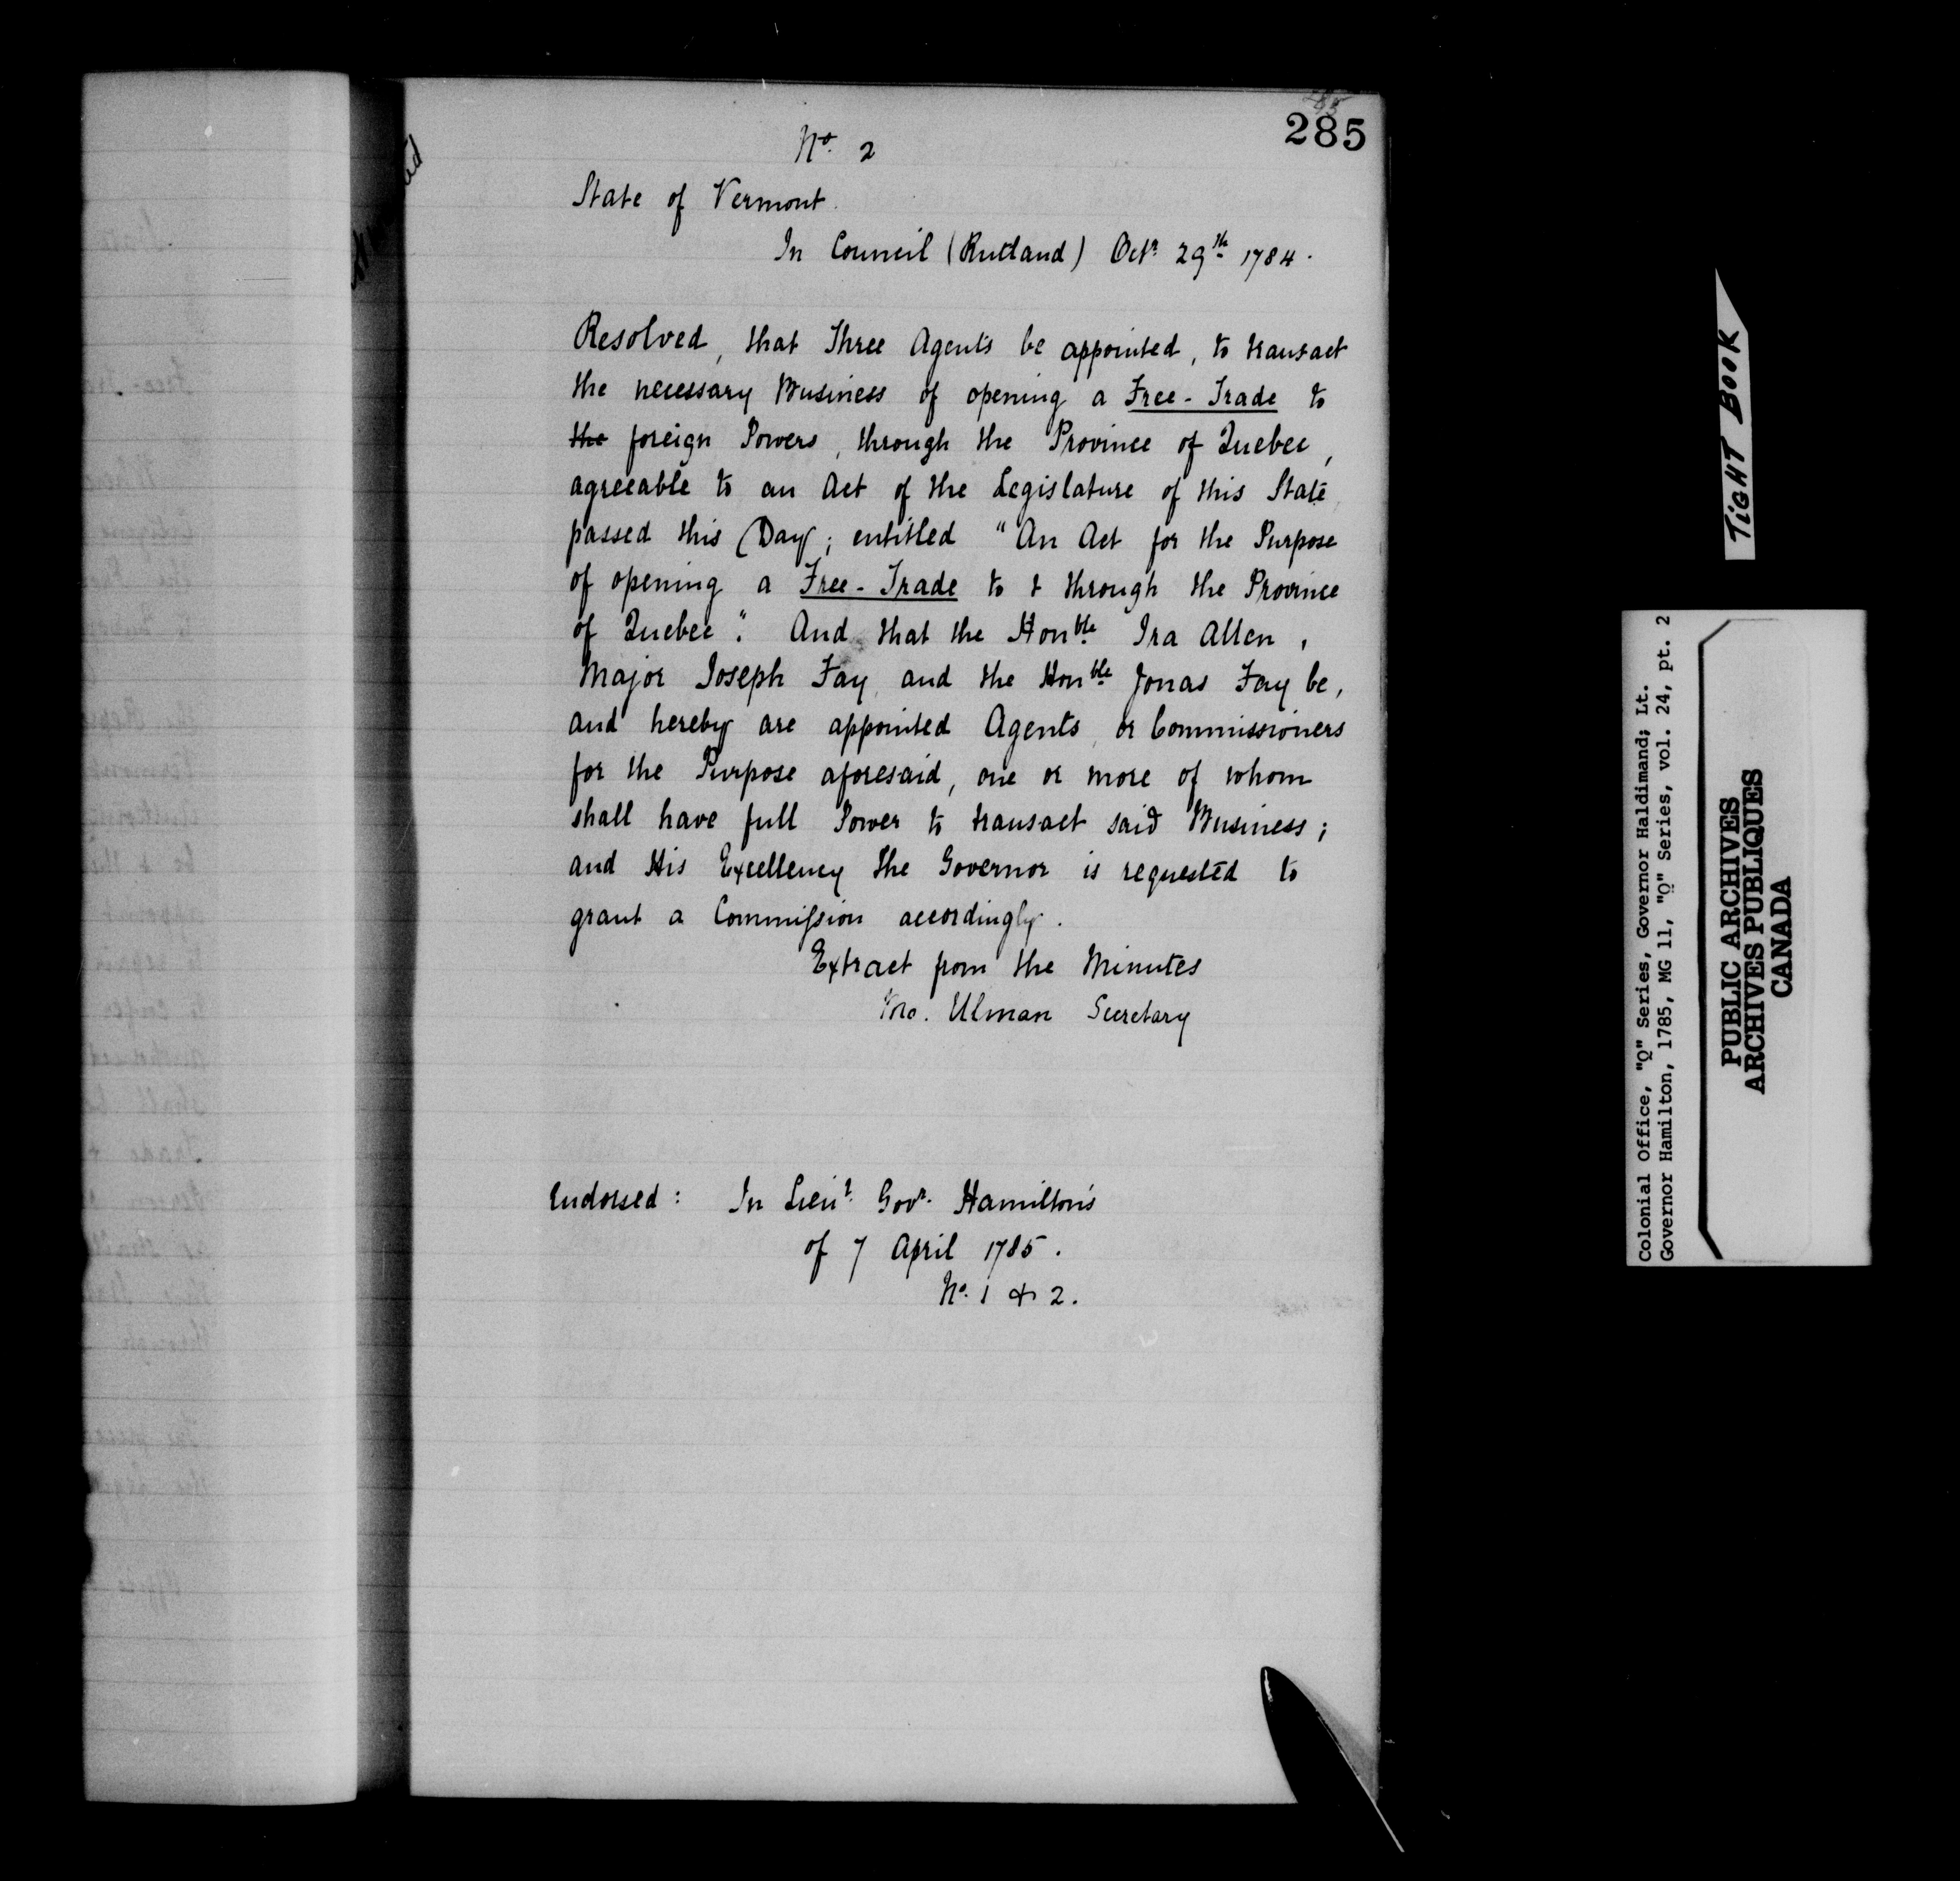 285
No. 2
State of Vermont.
In Council (Rutland) Octr. 29th 1784.
Resolved, that Three Agents be appointed, to transact
the necessary Business of opening a Free-Trade to
the foreign Powers, through the Province of Quebec,
agreeable to an Act of the Legislature of this State
passed this Day; entitled "An Act for the Purpose
of opening a Free-Trade to & through the Province
of Quebec". And that the Honble Ira Allen,
Major Joseph Fay, and the Honble Jonas Fay be,
and hereby are appointed Agents, or Commissioners
for the Purpose aforesaid, one or more of whom
shall have full Power to transact said Business;
and His Excellency the Governor is requested to
grant a Commission accordingly.
Extract from the Minutes
Ulman Secretary
Endorsed: In Lieut. Govr. Hamilton's
of 7 April 1785.
No. 1 & 2.
TIGHT BOOK
Colonial Office, "Q" Series, Governor Haldimand; Lt.
Governor Hamilton, 1785, MG 11, "Q" Series, vol. 24, pt. 2
PUBLIC ARCHIVES
ARCHIVES PUBLIQUES
CANADA